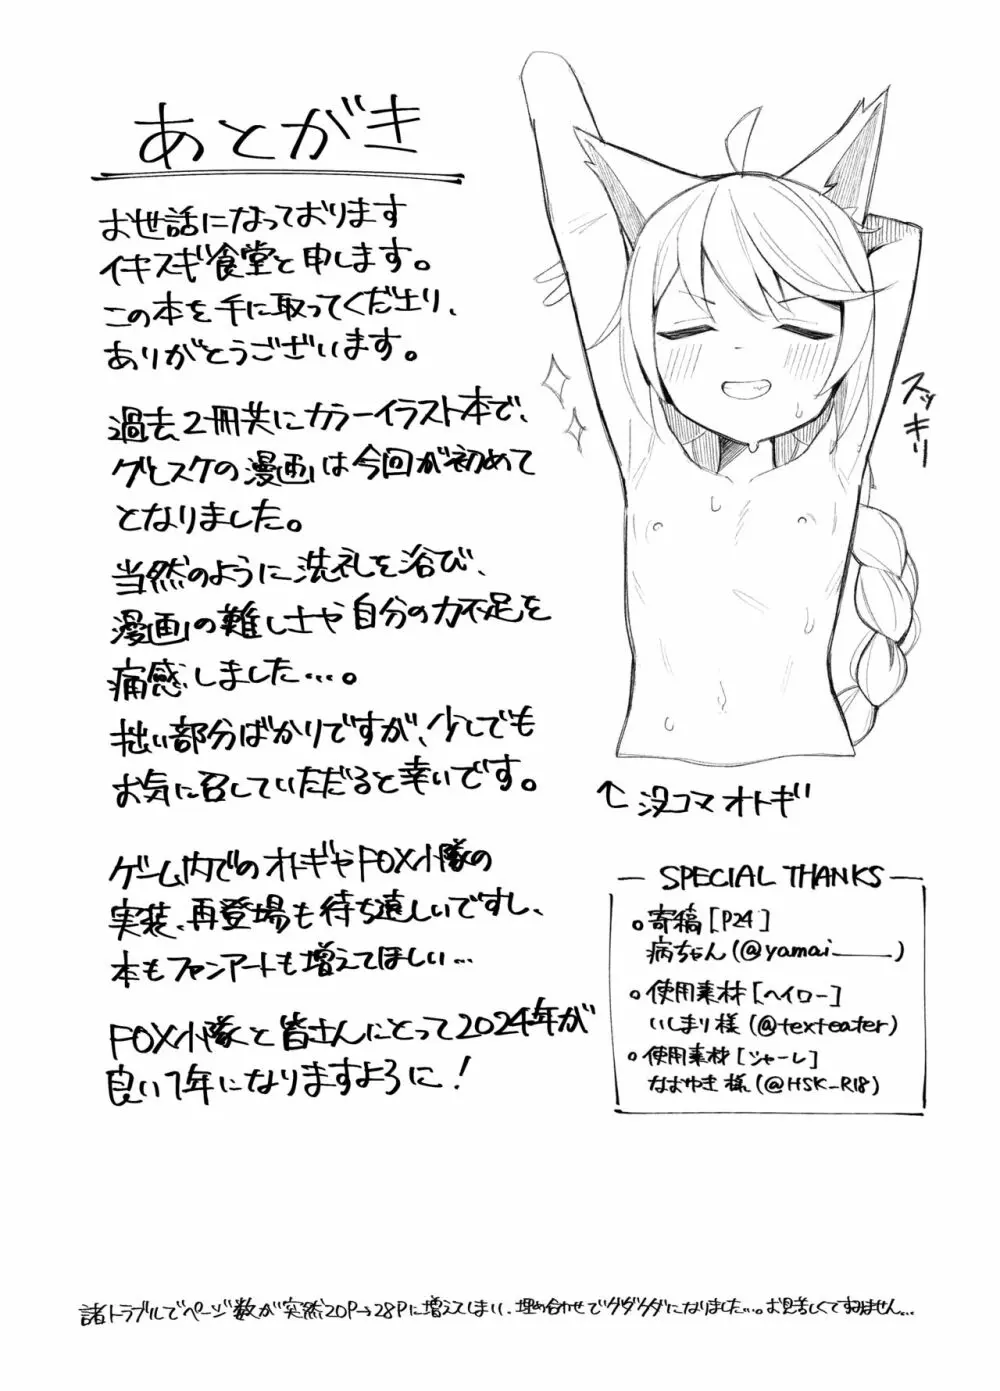 あとがき
お世話になっております
イキスギ食堂と申します。
この本を手に取ってくだエリ、
ありがとうございます。
過去2冊共にカラーイラスト本で、
グヒスケの漫画は今回が初めて
となりました。
当然のように洗礼を浴び、
漫画の難しさや自分の力不足を
痛感しました…。
拙い部分ばかりですが、少しでも
お気に召していただると幸いです。
ゲーム内でのオトギやFOX小隊の
実装、再登場も待ち遠しいですし、
本もファンアートも増えてほしい…
FOX小隊と皆さんにとって2024年が
良い1年になりますように!
スッキリ
↑没コマオトギ
SPECIAL THANKS
○寄稿[P24]
病ちゃん(@yamai_____)
○使用素材[ヘイロー]
いしまり様(@texteater)
○使用素材[シャーレ]
なおゆき様(@HSK_R18)
諸トラブルでページ数が突然20P→28Pに増えてしまい、埋め合わせでグダグダになりました…。お見苦しくてすみません…